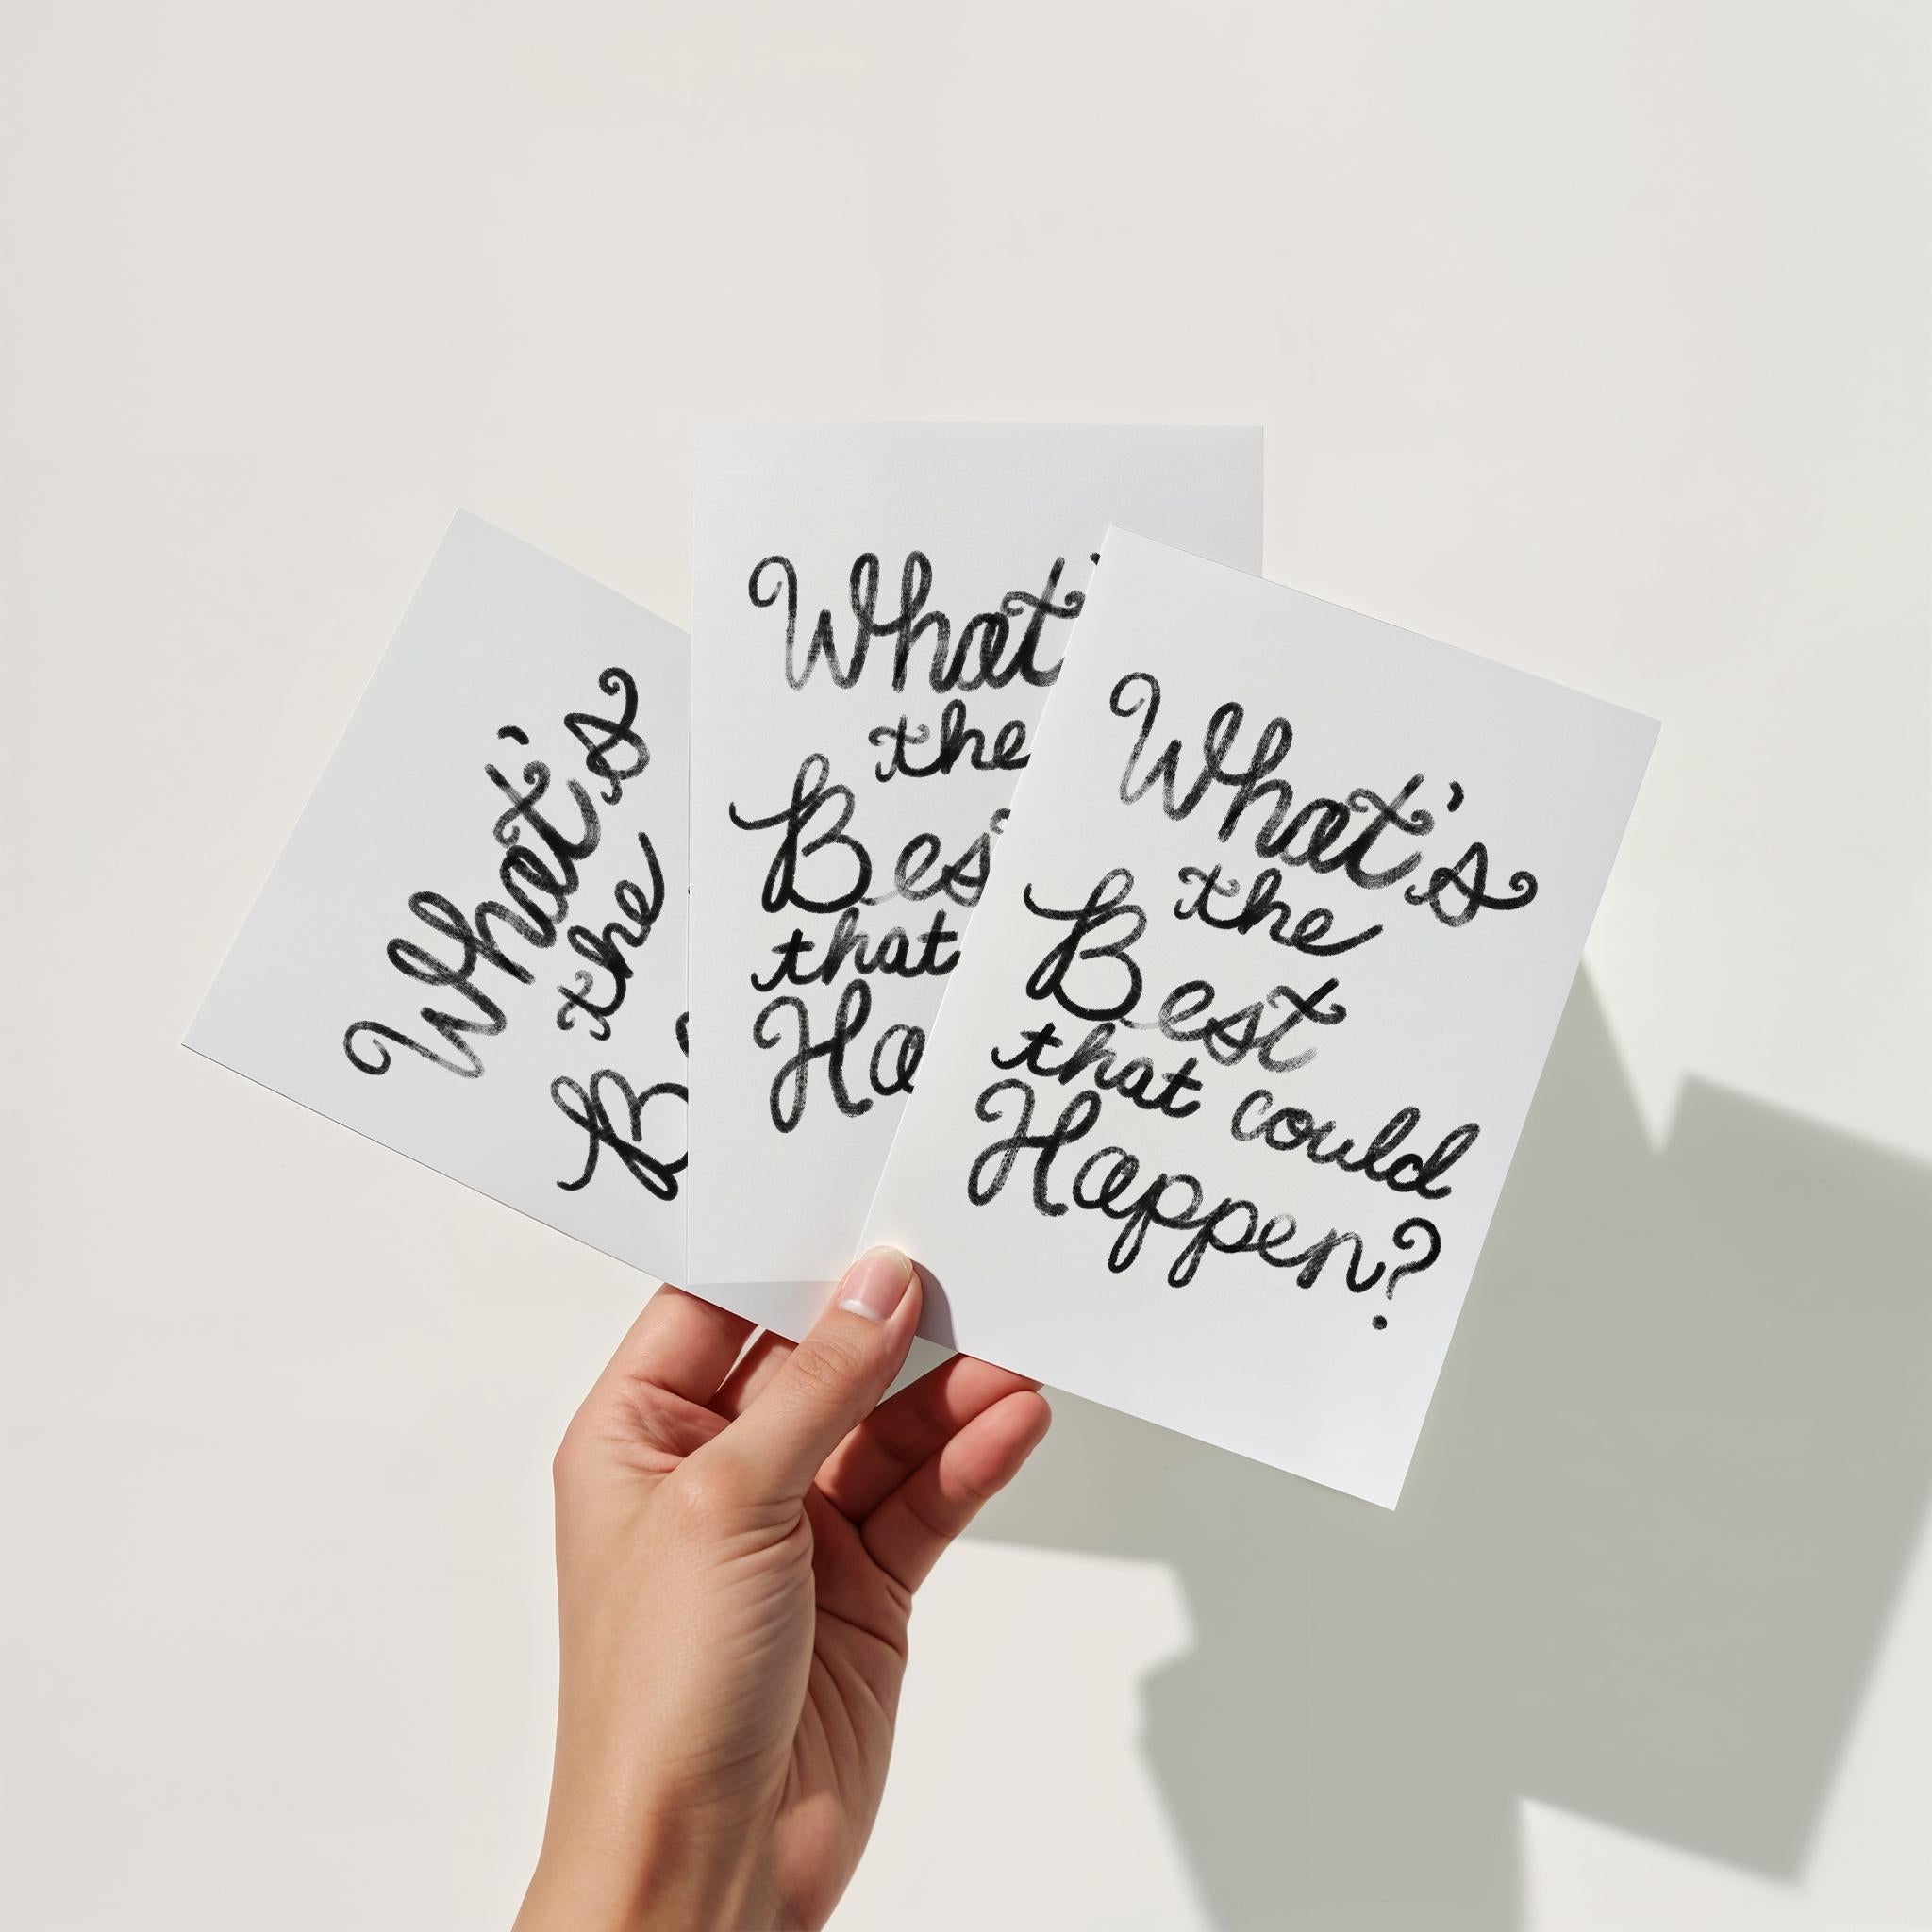 What's
the
B
What'
the
Bes
that
Ha
What's
the
Best
that could
Happen?